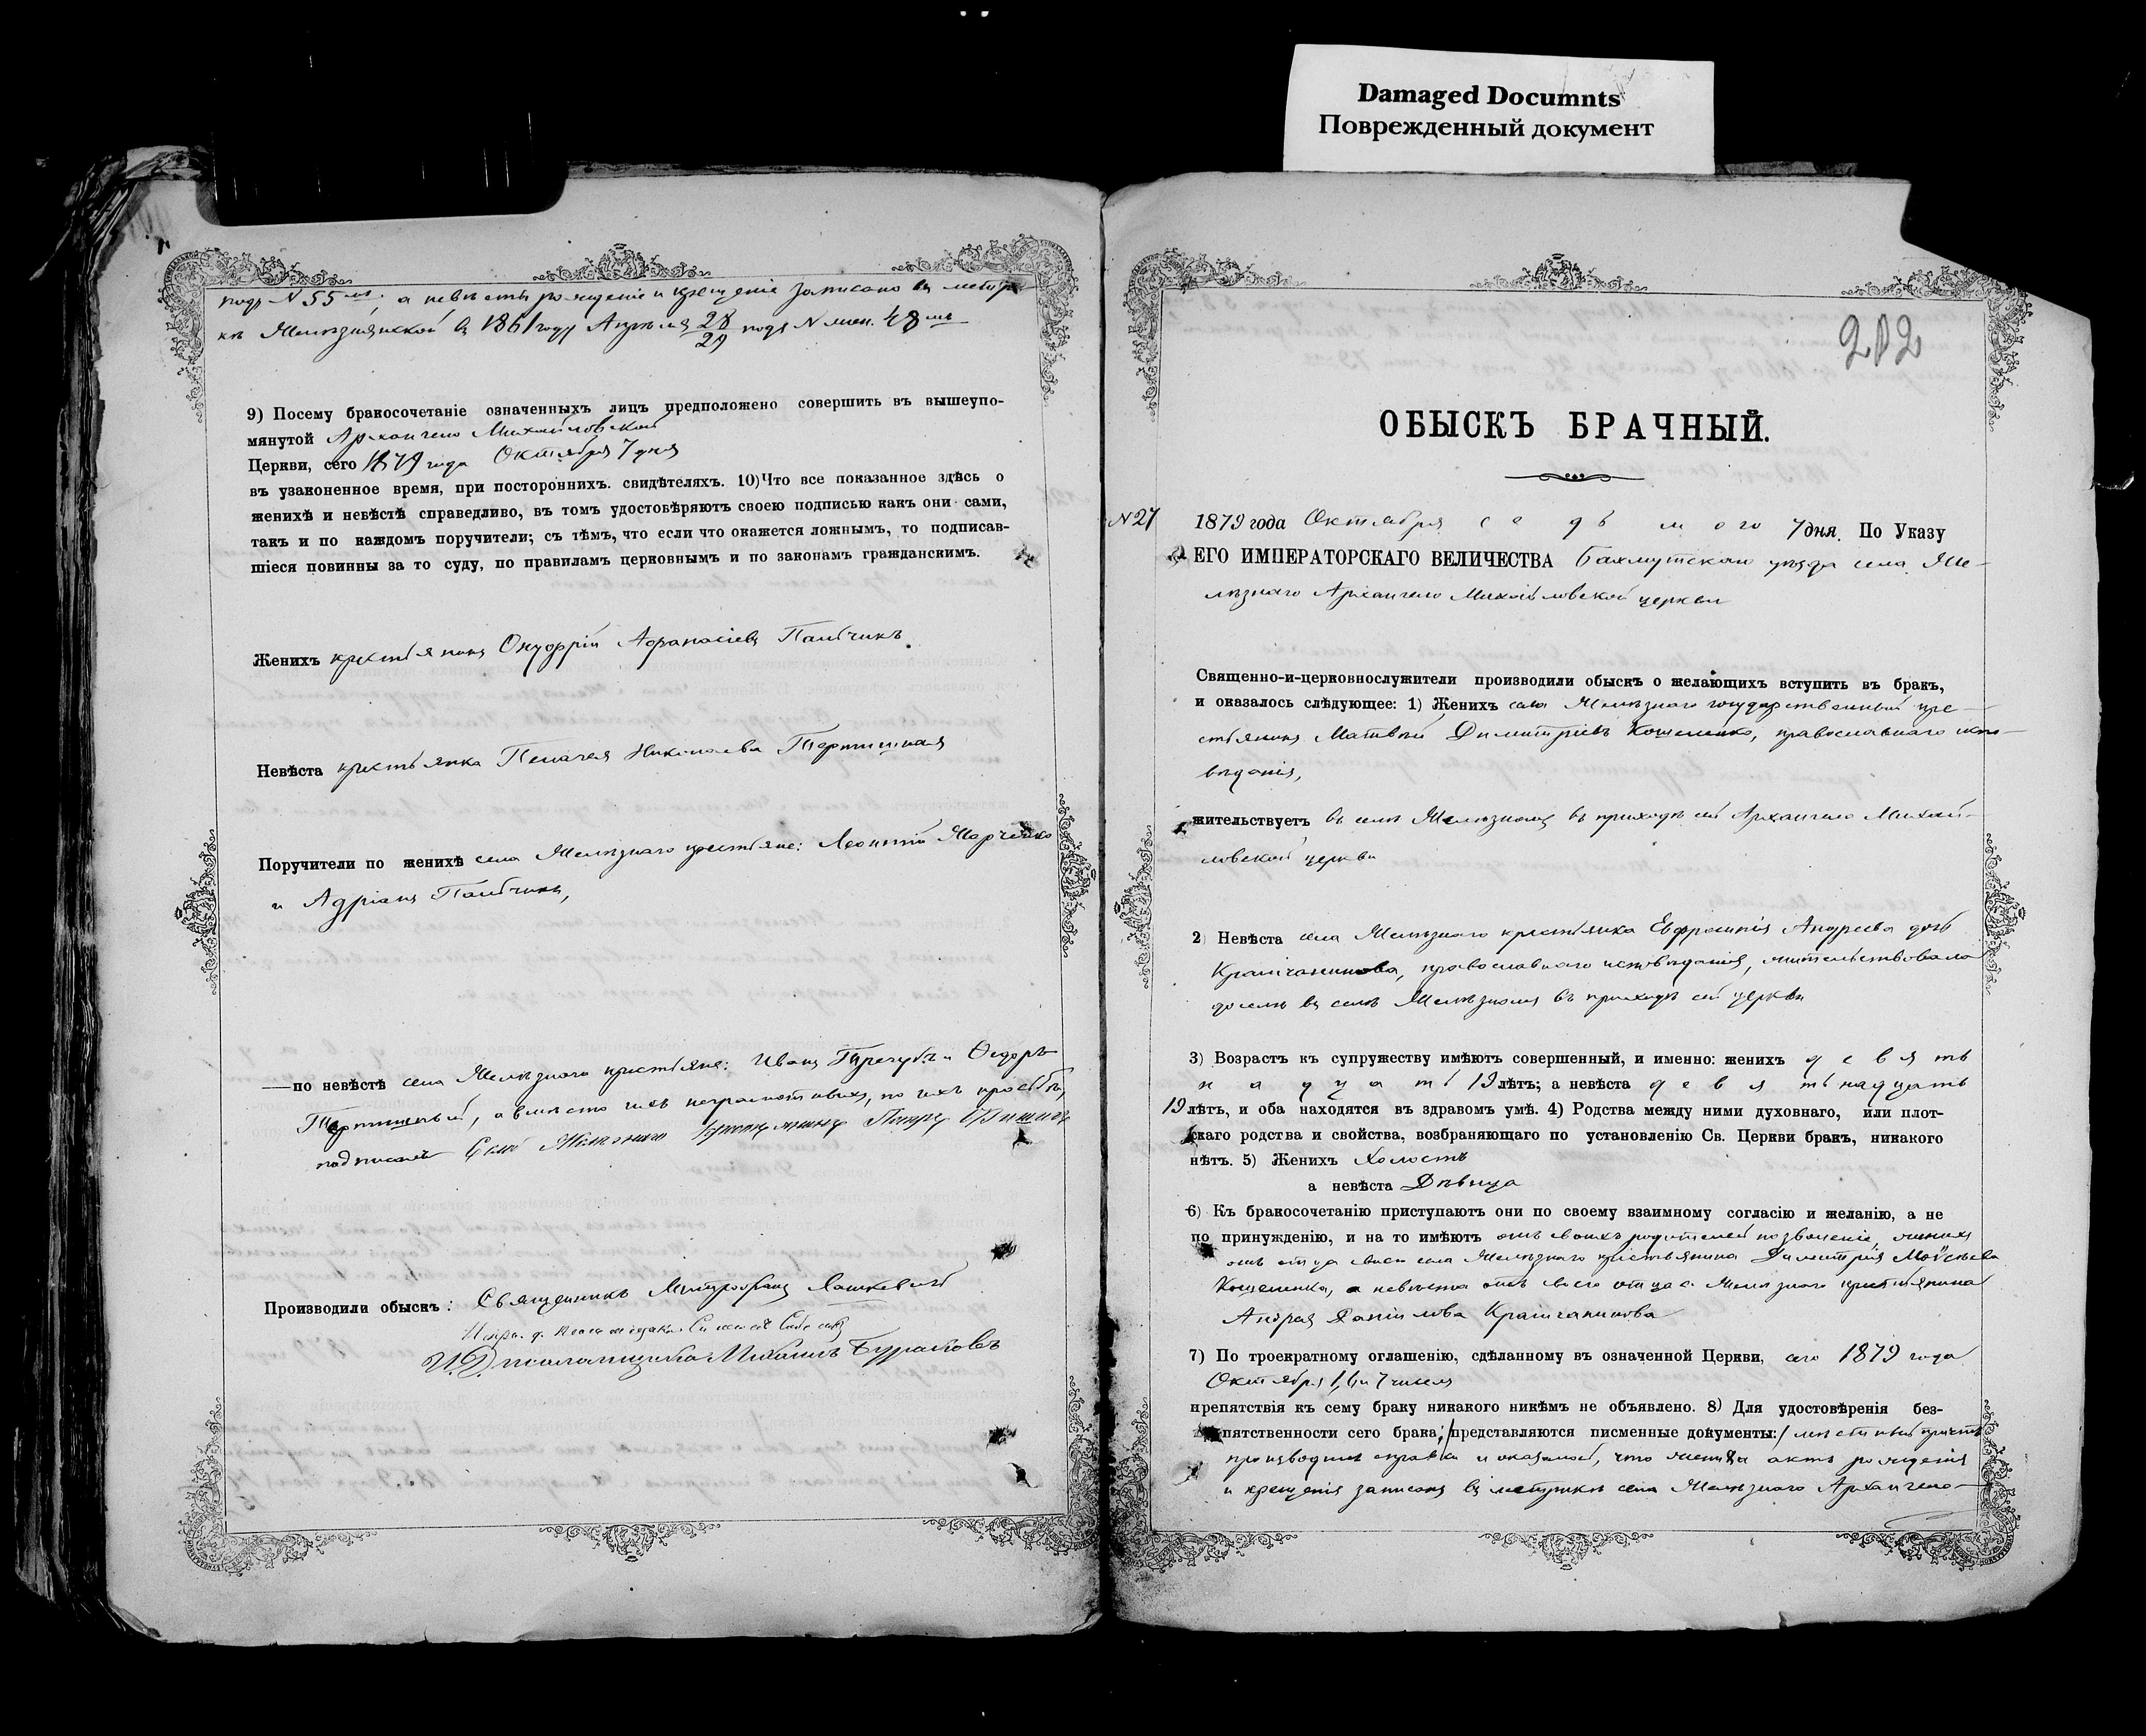 Damaged Documnts
Поврежденный документ
подъ N 55мъ, а невѣсты рожденіе и крещеніе записано въ метри-
кѣ Желѣзнянской въ 1861 году Апрѣля 28/29 подъ N жен. 48мъ
9) Посему бракосочетаніе означенныхъ лицъ предположено совершить въ вышеупо-
мянутой Архангело Михайловской
Церкви, сего 1879 года Октября 7 дня
въ узаконенное время, при постороннихъ. свидѣтеляхъ. 10) Что все показанное здѣсь о
женихѣ и невѣстѣ справедливо, въ томъ удостовѣряютъ своею подписью какъ они сами,
такъ и по каждомъ поручители; съ тѣмъ, что если что окажется ложнымъ, то подписав-
шіеся повинны за то суду, по правиламъ церковнымъ и по законамъ гражданскимъ.
Женихъ крестьянинъ Онуфрій Афанасіевъ Пальчикъ
Невѣста крестьянка Пелагея Николаева
Поручители по женихѣ села Желѣзнаго крестьяне: Леонтій Марченко
и Адріанъ Пальчикъ,
—по невѣстѣ села Желѣзнаго крестьяне: Иванъ и Ѳедоръ
а вмѣсто ихъ неграмотныхъ, по ихъ просьбѣ,
подписался
Производили обыскъ: Священникъ Митрофанъ Яшкевичъ
И. Д. псаломщика Михаилъ
202
ОБЫСКЪ БРАЧНЫЙ.
N 27 1879 года Октября седьмого 7 дня. По Указу
ЕГО ИМПЕРАТОРСКАГО ВЕЛИЧЕСТВА Бахмутскаго уѣзда села Же-
лѣзнаго Архангело Михайловской церкви
Священно-и-церковнослужители производили обыскъ о желающихъ вступить въ бракъ,
и оказалось слѣдующее: 1) Женихъ села Желѣзнаго государственный кре-
стьянинъ Матвѣй Димитріевъ Кошеленко, православнаго испо-
вѣданія,
жительствуетъ въ селѣ Желѣзномъ въ приходѣ сей Архангело Михай-
ловской церкви
2) Невѣста села Желѣзнаго крестьянка Евфросинія Андреева дочь
Крамчанинова, православнаго исповѣданія, жительствовала
доселѣ въ селѣ Желѣзномъ въ приходѣ сей церкви
3) Возрастъ къ супружеству имѣютъ совершенный, и именно: женихъ девять
надцать 19 лѣтъ; а невѣста девятьнадцать
19 лѣтъ, и оба находятся въ здравомъ умѣ. 4) Родства между ними духовнаго, или плот-
скаго родства и свойства, возбраняющаго по установленію Св. Церкви бракъ, никакого
нѣтъ. 5) Женихъ Холостъ
а невѣста Дѣвица
6) Къ бракосочетанію приступаютъ они по своему взаимному согласію и желанію, а не
по принужденію, и на то имѣютъ отъ своихъ родителей позволеніе, женихъ
отъ отца своего села Желѣзнаго крестьянина Димитрія Моѵсѣева
Кошеленка, а невѣста отъ своего отца с. Желѣзнаго крестьянина
Андрея Даніилова Крамчанинова
7) По троекратному оглашенію, сдѣланному въ означенной Церкви, сего 1879 года
Октября 1, 6 и 7 чиселъ
препятствія къ сему браку никакого никѣмъ не объявлено. 8) Для удостовѣренія без-
пятственности сего брака; представляются писменные документы: мѣстный причтъ
производилъ справки и оказалось, что жениха актъ рожденія
и крещенія записанъ въ метрикѣ села Желѣзнаго Архангело-